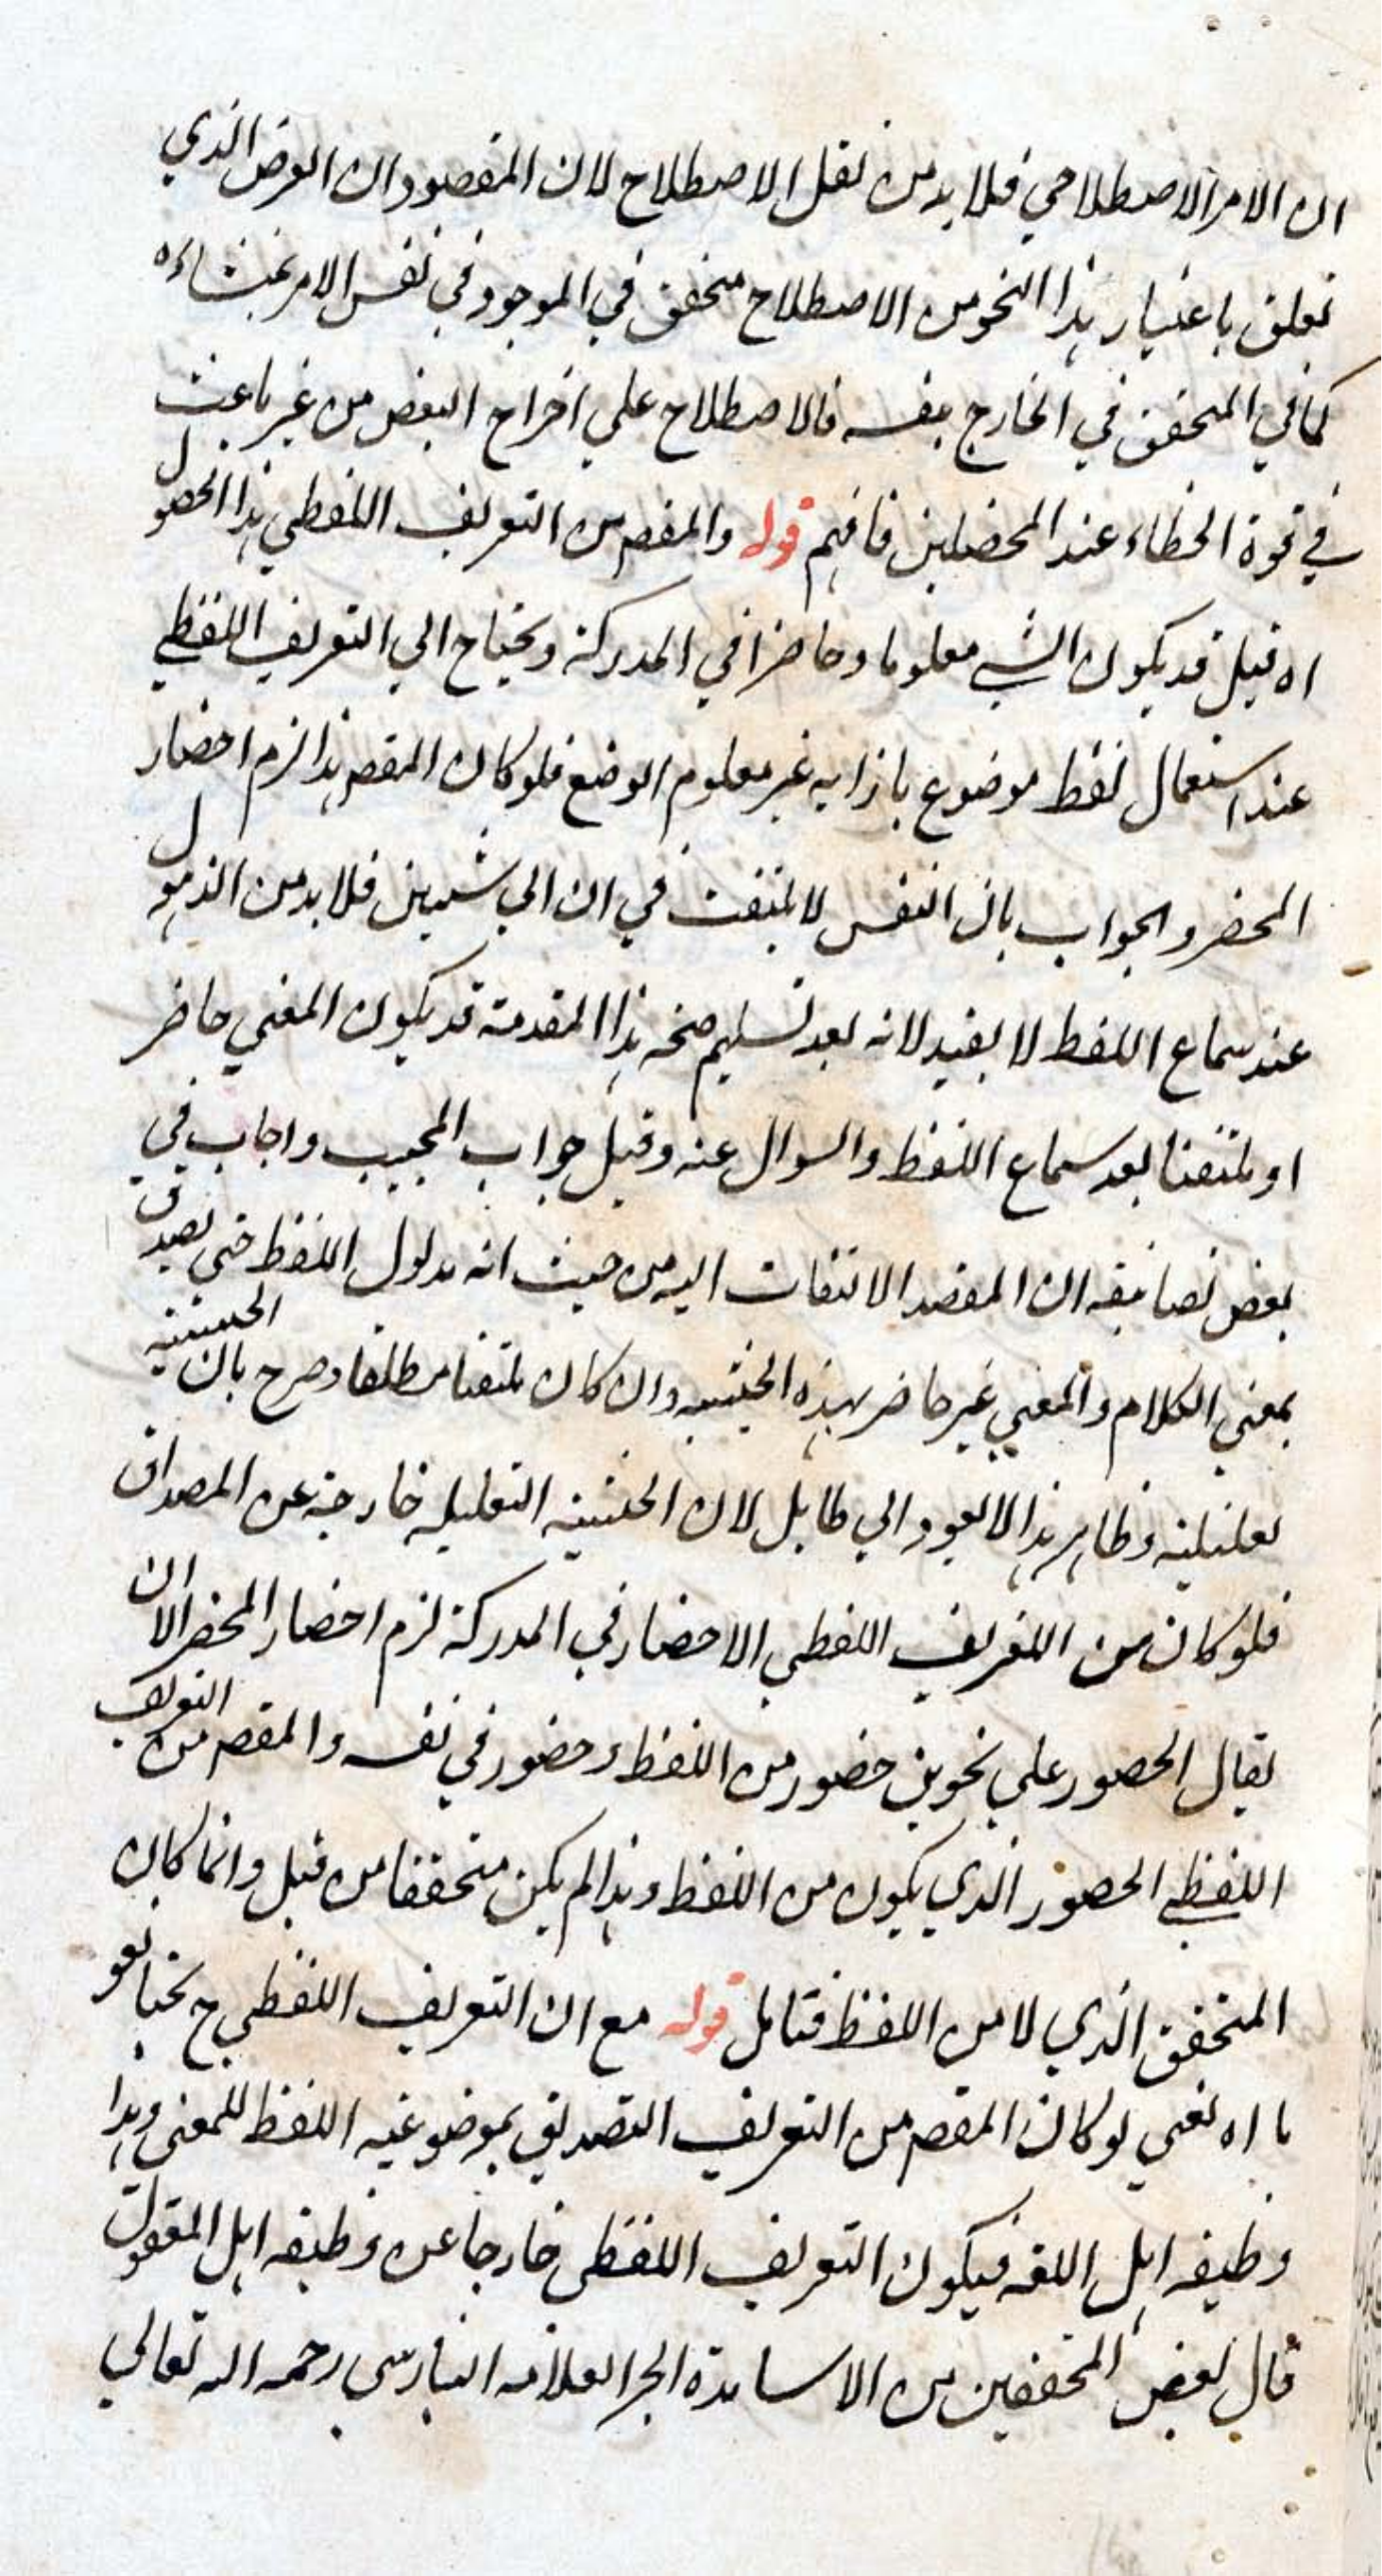 ان الامر الاصطلاحي فلا بد من نقل الاصطلاح لان المقصود ان الغرض الذي
تعلق باعتبار هذا النحو من الاصطلاح متحقق في الموجود في نفس الامر بمنشاءه
كما في المتحقق في الخارج بنفسه فالاصطلاح علي اخراج البعض من غير باعث
في قوة الخطاء عند المحصلين فافهم قوله والمقصر من التعريف اللفظي هذا الحصول
اه قيل قد يكون الشي معلوما وحاضرا في المدركة ويحتاج الي التعريف اللفظي
عند استعمال لفظ موضوع بازايه غير معلوم الوضع فلو كان المقصر هذا لزم احضار
المحضر والجواب بان النفس لا يلتفت في ان الي شيين فلا بد من الذهول
عند سماع اللفظ لا يفيد لانه بعد تسليم صحه هذا المقدمة قد يكون المعني حاضر
او ملتفتا بعد سماع اللفظ والسوال عنه وقبل جواب المجيب واجاب في
بعض تصانيفه ان المقصد الالتفات اليه من حيث انه مدلول اللفظ حتي يصدق
بمعني الكلام والمعني غير حاضر بهذه الحيثيه وان كان ملتفتا مطلقا وصرح بان الحيثيته
تعليلية وظاهر هذا لا يعود الي طايل لان الحيثية التعليليه خارجة عن المصداق
فلو كان من التعريف اللفظي الاحضار في المدركة لزم احضار المحضر الا ان
يقال الحصور علي نحوين حضور من اللفظ وحضور في نفسه والمقصر من التعريف
اللفظي الحصور الذي يكون من اللفظ وهذا لم يكن متحققا من قبل وانما كان
المتحقق الذي لا من اللفظ فتامل قوله مع ان التعريف اللفظي ح
با اه يعني لو كان المقصر من التعريف التصديق بموضوعيه اللفظ للمعني وهذا
وظيفه اهل اللغه فيكون التعريف اللفظي خارجا عن وظيفه اهل المعقول
قال بعض المحققين من الاساتذة العلامه رحمه الله تعالي